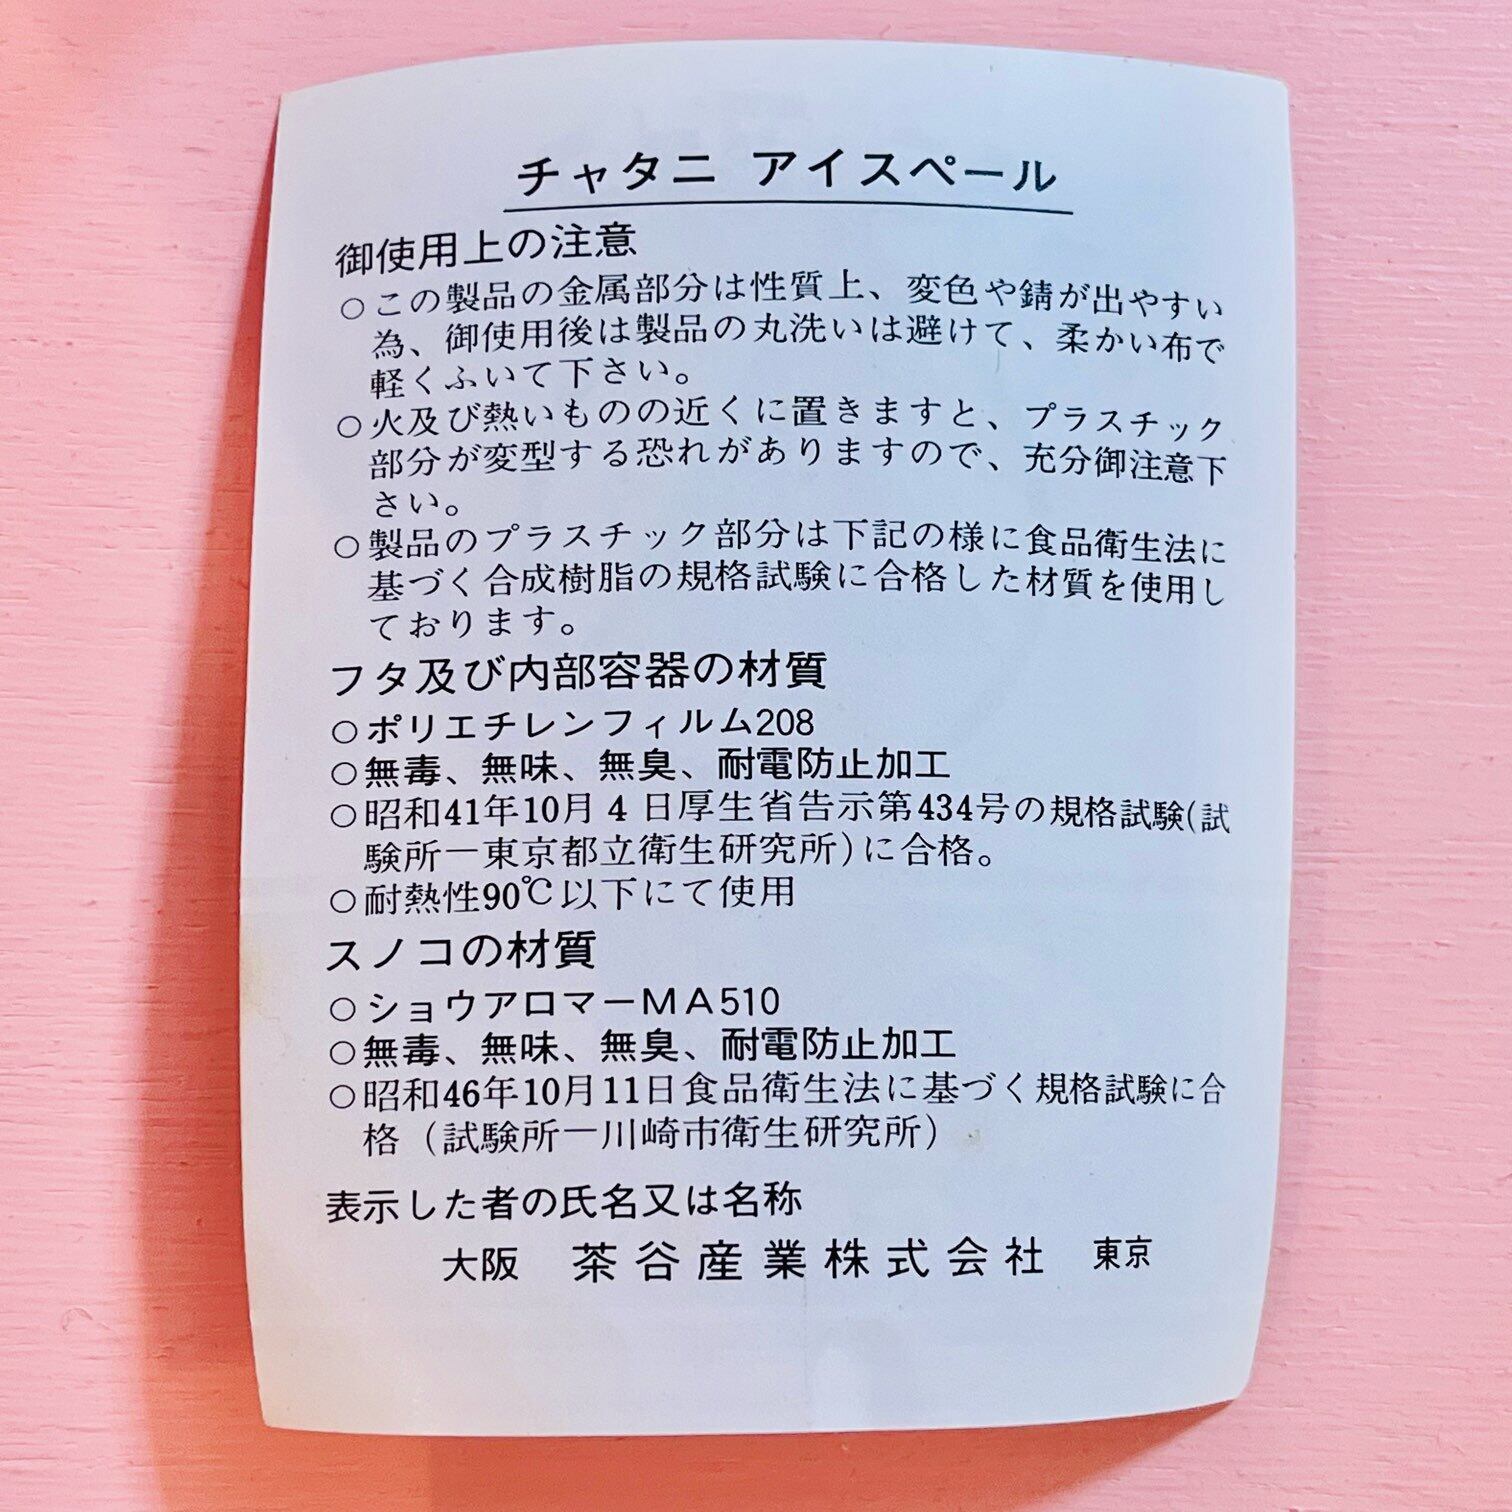 チャタニ アイスペール
御使用上の注意
○この製品の金属部分は性質上、変色や錆が出やすい
為、御使用後は製品の丸洗いは避けて、柔かい布で
軽くふいて下さい。
○火及び熱いものの近くに置きますと、プラスチック
部分が変型する恐れがありますので、充分御注意下
さい。
○製品のプラスチック部分は下記の様に食品衛生法に
基づく合成樹脂の規格試験に合格した材質を使用し
ております。
フタ及び内部容器の材質
○ポリエチレンフィルム208
○無毒、無味、無臭、耐電防止加工
○昭和41年10月4日厚生省告示第434号の規格試験(試
験所―東京都立衛生研究所)に合格。
○耐熱性90℃以下にて使用
スノコの材質
○ショウアロマーMA510
○無毒、無味、無臭、耐電防止加工
○昭和46年10月11日食品衛生法に基づく規格試験に合
格(試験所―川崎市衛生研究所)
表示した者の氏名又は名称
大阪 茶谷産業株式会社 東京